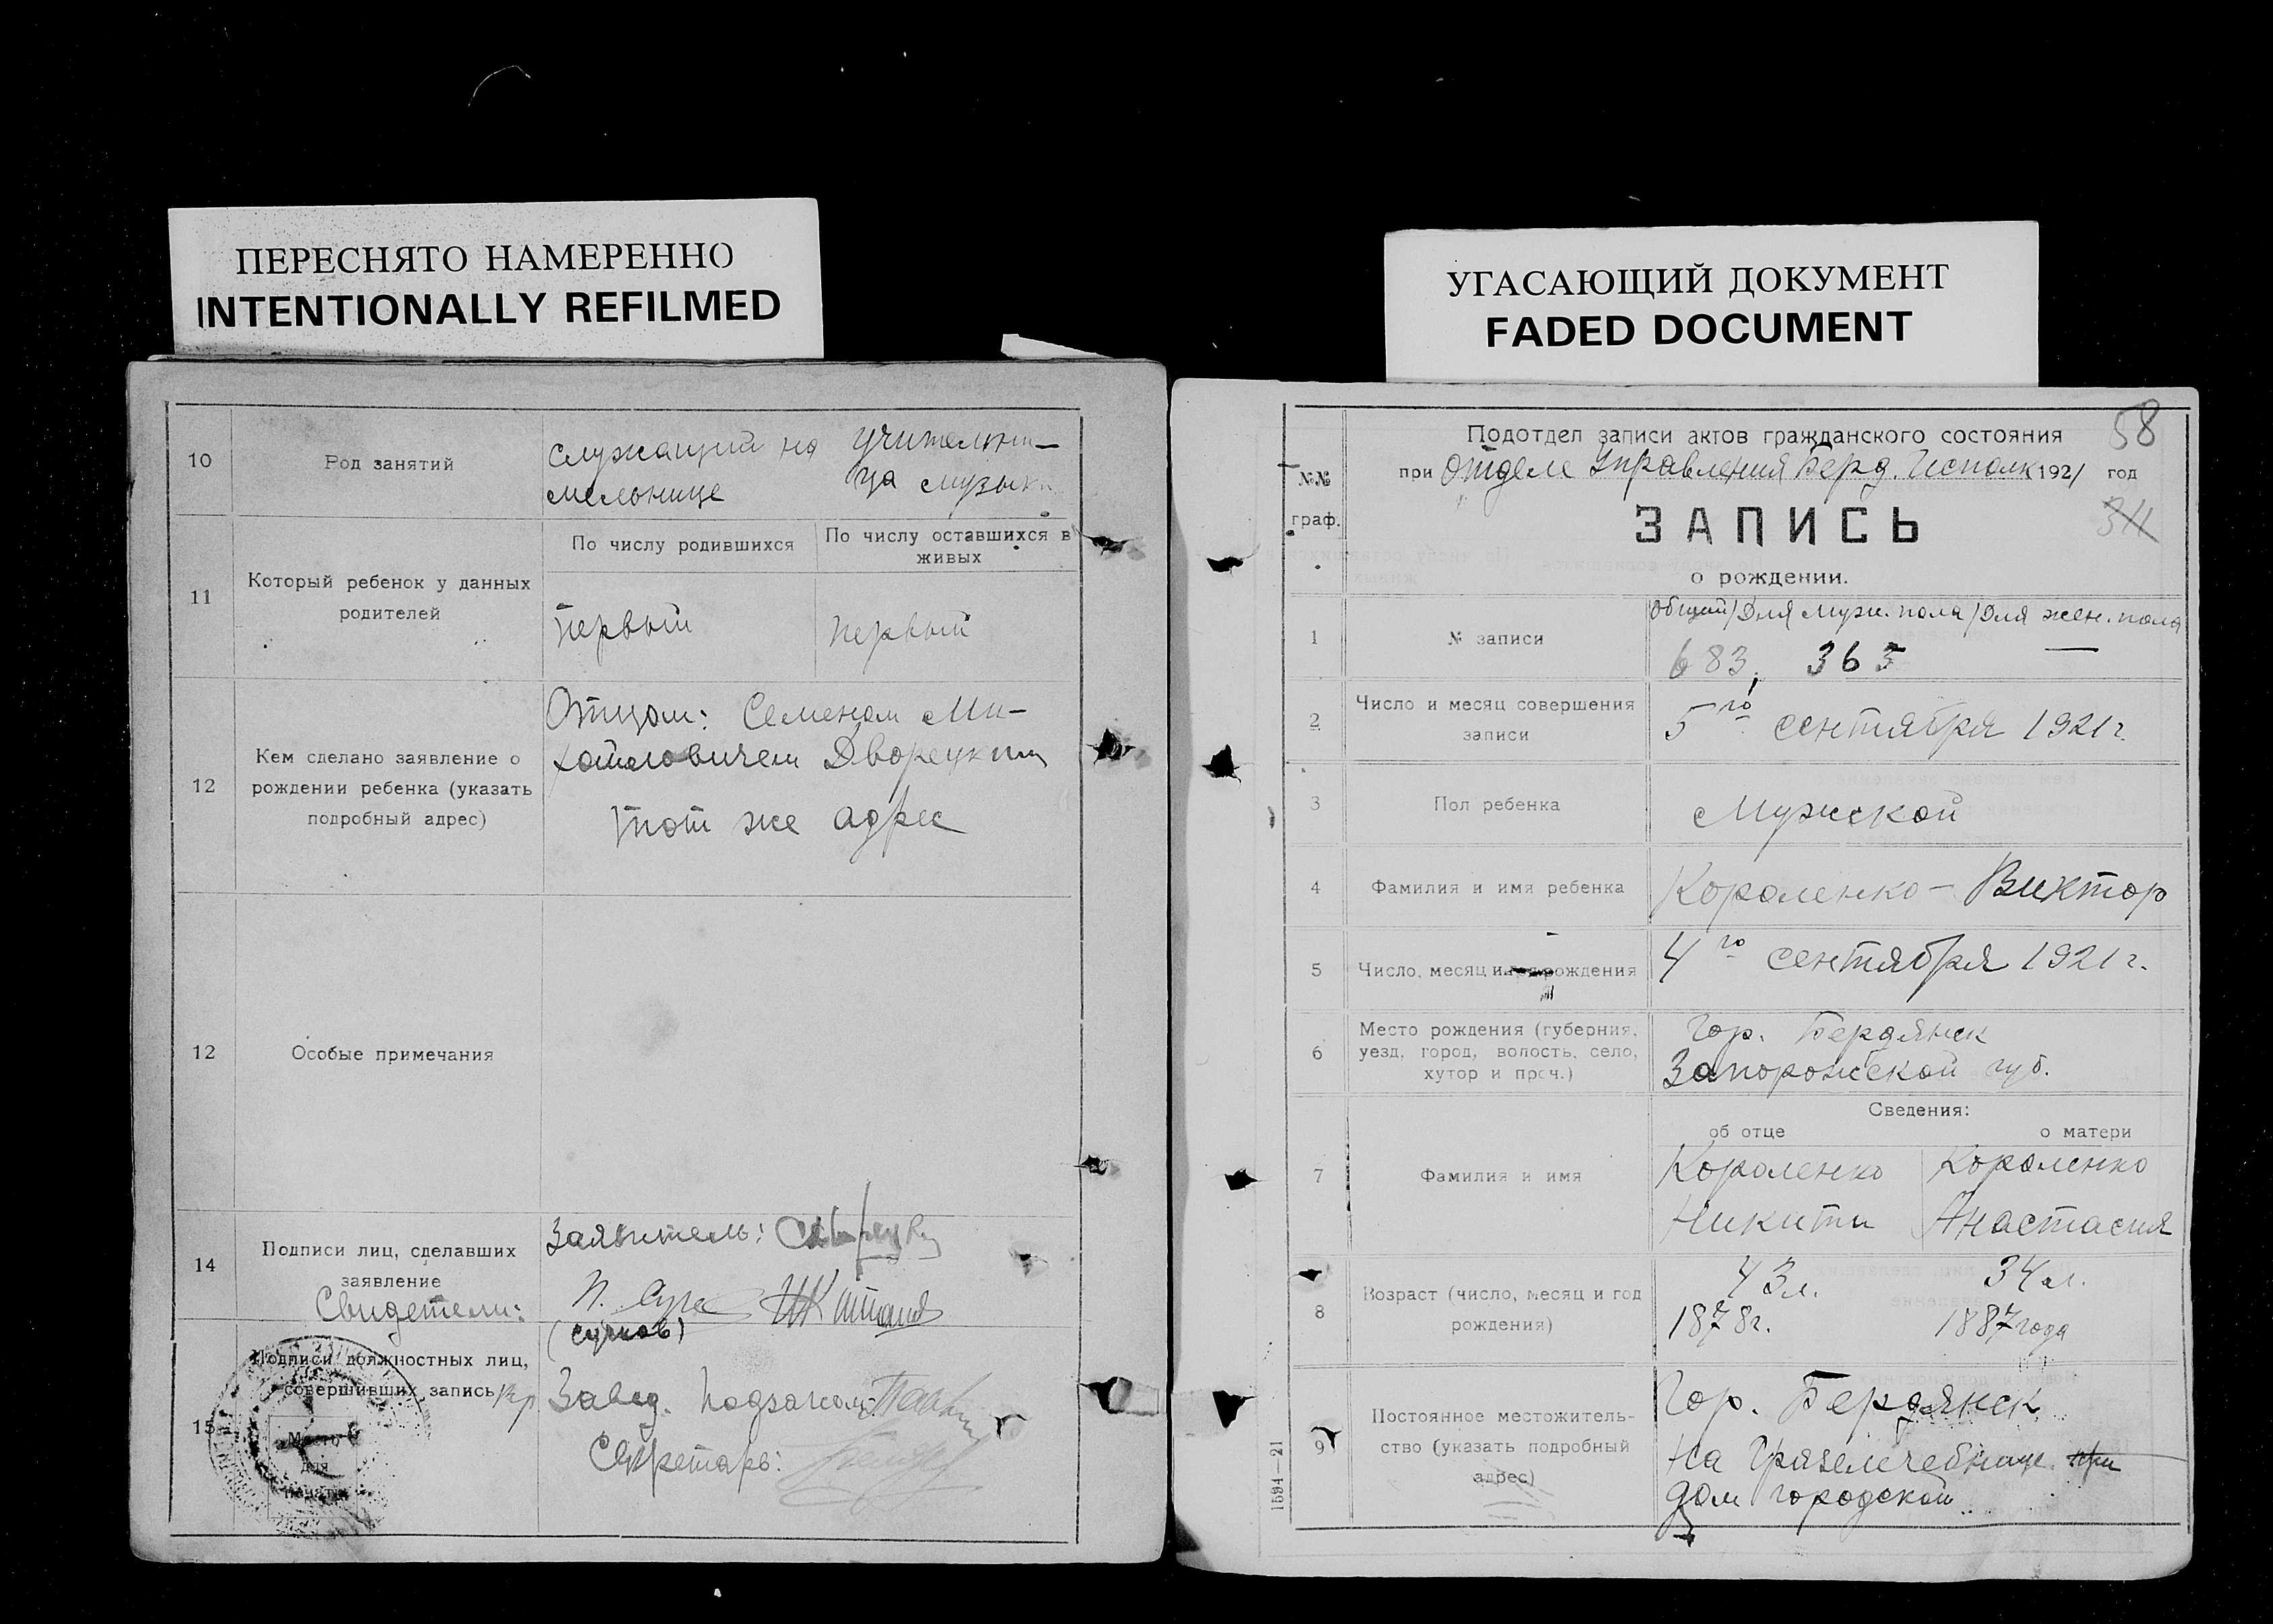 ПЕРЕСНЯТО НАМЕРЕННО
INTENTIONALLY REFILMED
10
Род занятий
служащий на
мельнице
учительни-
ца музыки
11
Который ребенок у данных
родителей
По числу родившихся
По числу оставшихся в
живых
первый
первый
12
Кем сделано заявление о
рождении ребенка (указать
подробный адрес)
Отцом: Семеном Ми-
хайловичем Дворецким
тот же адрес
12
Особые примечания
14
Подписи лиц, сделавших
заявление
Свидетели:
Заявитель:
(Сучков)
15
Подписи должностных лиц,
совершивших запись
Место
для
печати
Завед. Подзагсом:
Секретарь:
УГАСАЮЩИЙ ДОКУМЕНТ
FADED DOCUMENT
58
№№
граф.
Подотдел записи актов гражданского состояния
при Отделе Управления Берд. Исполк 1921 год
311
ЗАПИСЬ
о рождении.
1
№ записи
Общий/Для муж. пола/Для жен. пола
683, 365 —
2
Число и месяц совершения
записи
5го сентября 1921 г.
3
Пол ребенка
Мужской
4
Фамилия и имя ребенка
Короленко - Виктор
5
Число, месяц и рождения
4го сентября 1921 г.
6
Место рождения (губерния,
уезд, город, волость, село,
хутор и проч.)
Гор. Бердянск
Запорожской губ.
Сведения:
об отце
о матери
7
Фамилия и имя
Короленко
Никити
Короленко
Анастасия
8
Возраст (число, месяц и год
рождения)
43 л.
1878 г.
34 л.
1887 года
9
Постоянное местожитель-
ство (указать подробный
адрес)
Гор. Бердянск
на Грязелечебнице при
дом городской
1594—21